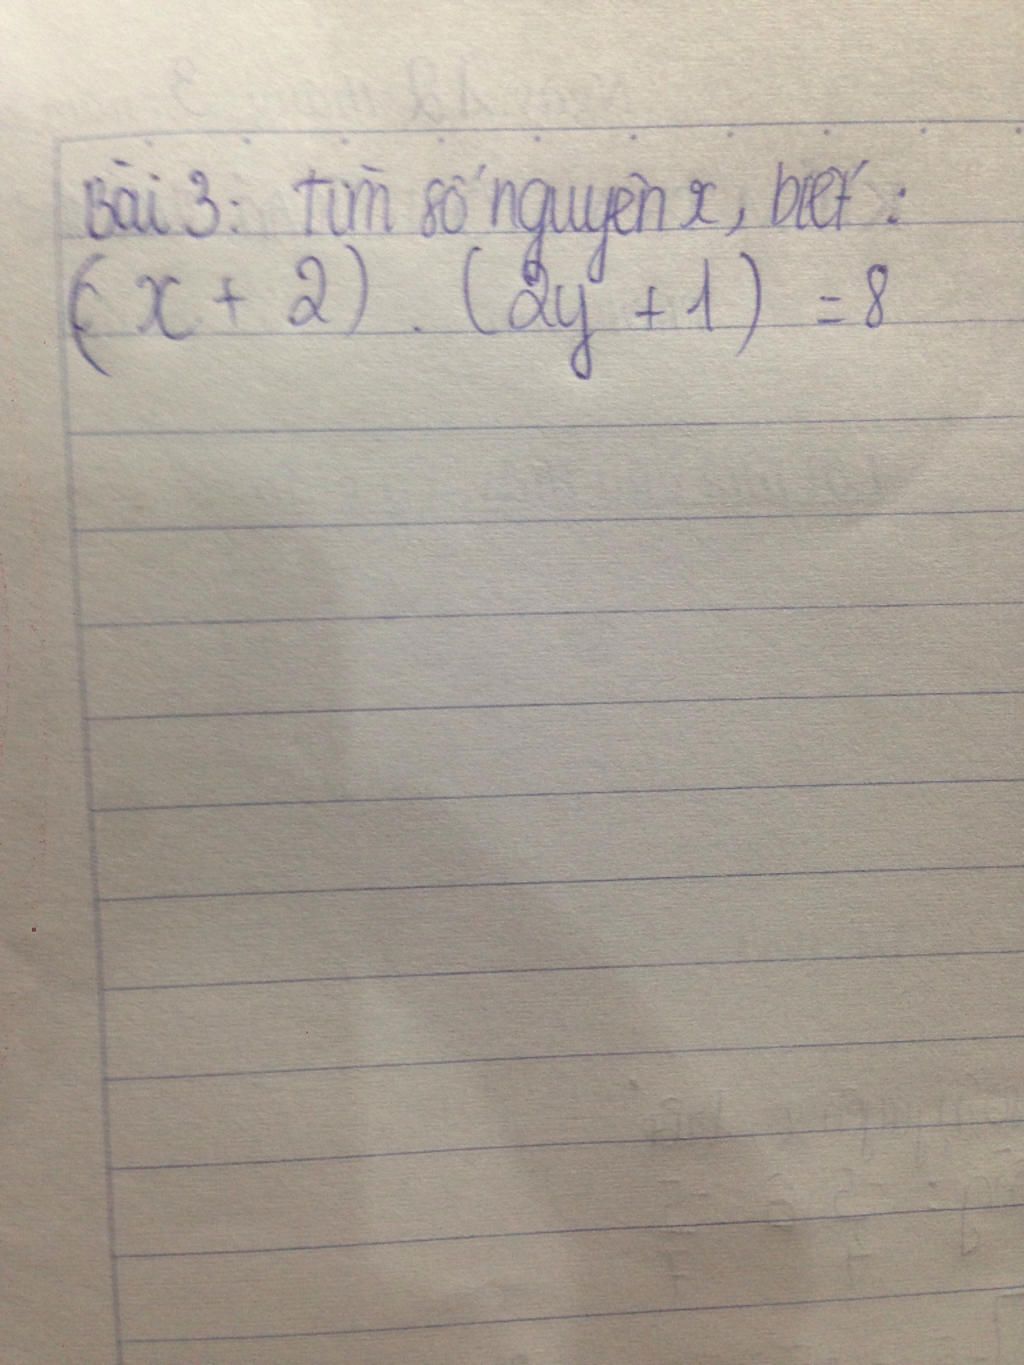 Bài 3: Tìm số nguyên x, biết:
(x + 2) . (2y + 1) = 8